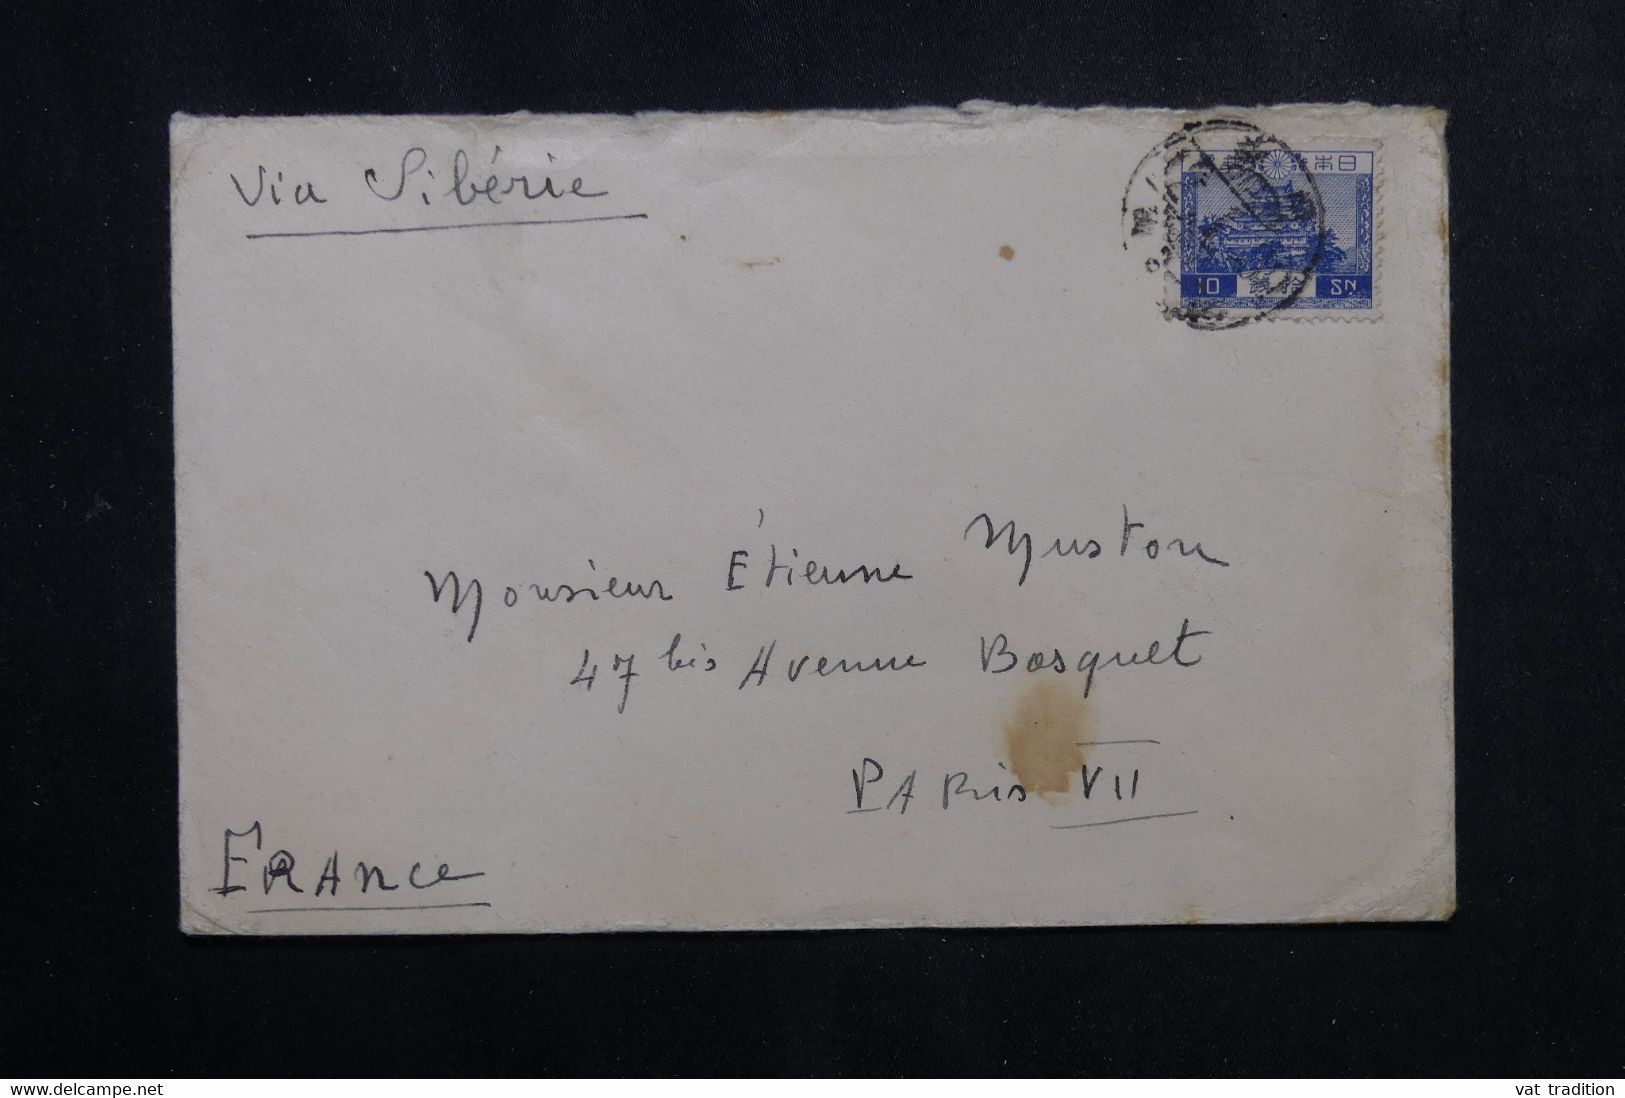 Via Sibérie
日本
10 拾銭 SN
Monsieur Étienne Muston
47 bis Avenue Bosquet
PARis VII
FRANce
www.delcampe.net
vat tradition